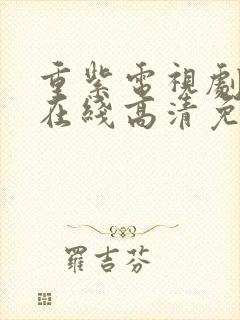 重紫電視劇
在綫高清免
羅吉芬